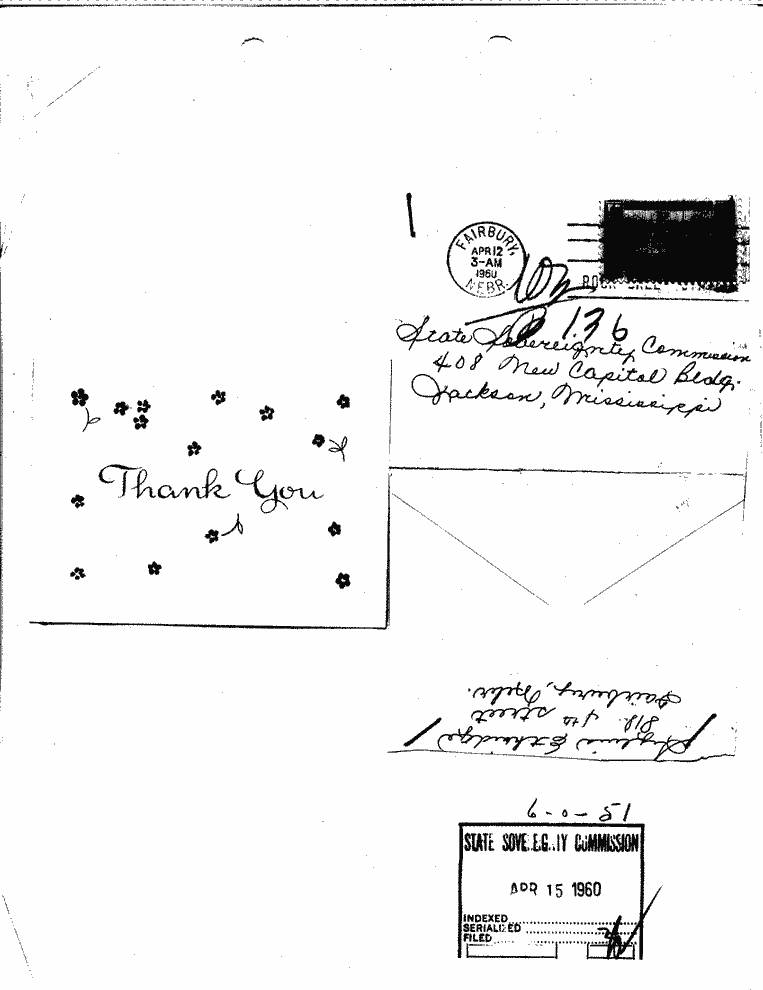 FAIRBURY,
APR 12
3-AM
1960
NEBR.
136
State Sovereignty Commission
408 New Capitol Bldg.
Jackson, Mississippi
Thank You
Etheridge
818 4th street
Fairbury, Nebr.
6-0-51
STATE SOVE.E.G..IY COMMISSION
APR 15 1960
INDEXED
SERIALIZED
FILED